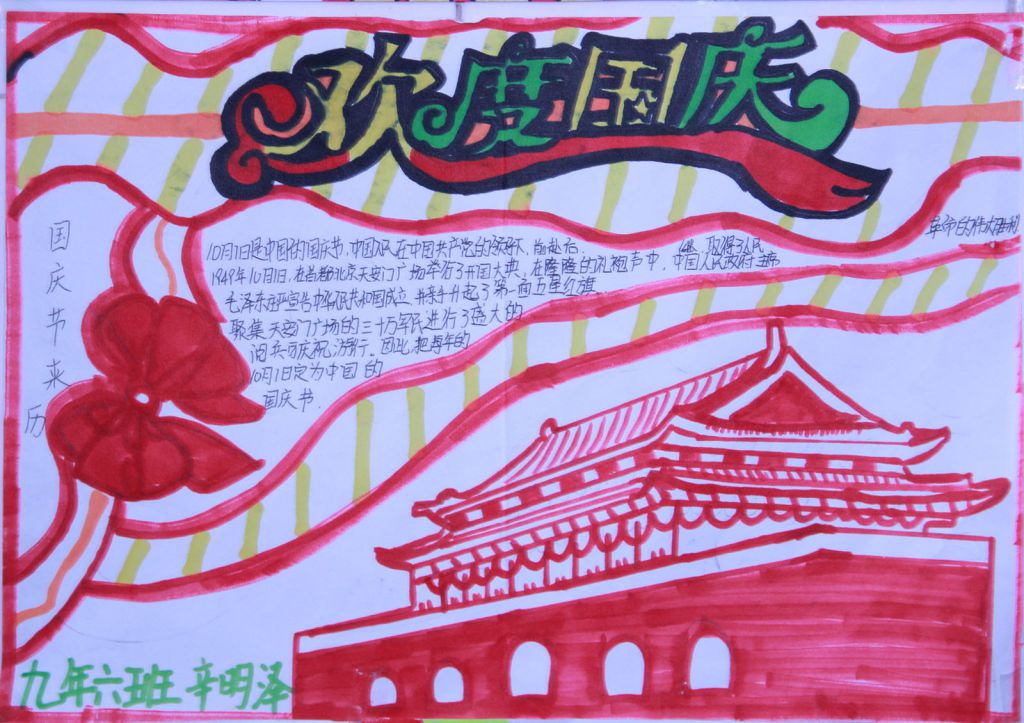 欢度国庆
国庆节来历
10月1日是中国的国庆节,中国人民在中国共产党的领导下,前赴后继,取得了人民革命的伟大胜利
1949年10月1日,在首都北京天安门广场举行了开国大典,在隆隆的礼炮声中,中国人民政府主席
毛泽东庄严宣告中华人民共和国成立 并亲手升起了第一面五星红旗
聚集天安门广场的三十万军民进行了盛大的
阅兵和庆祝游行。因此,把每年的
10月1日定为中国的
国庆节.
九年六班 辛明泽